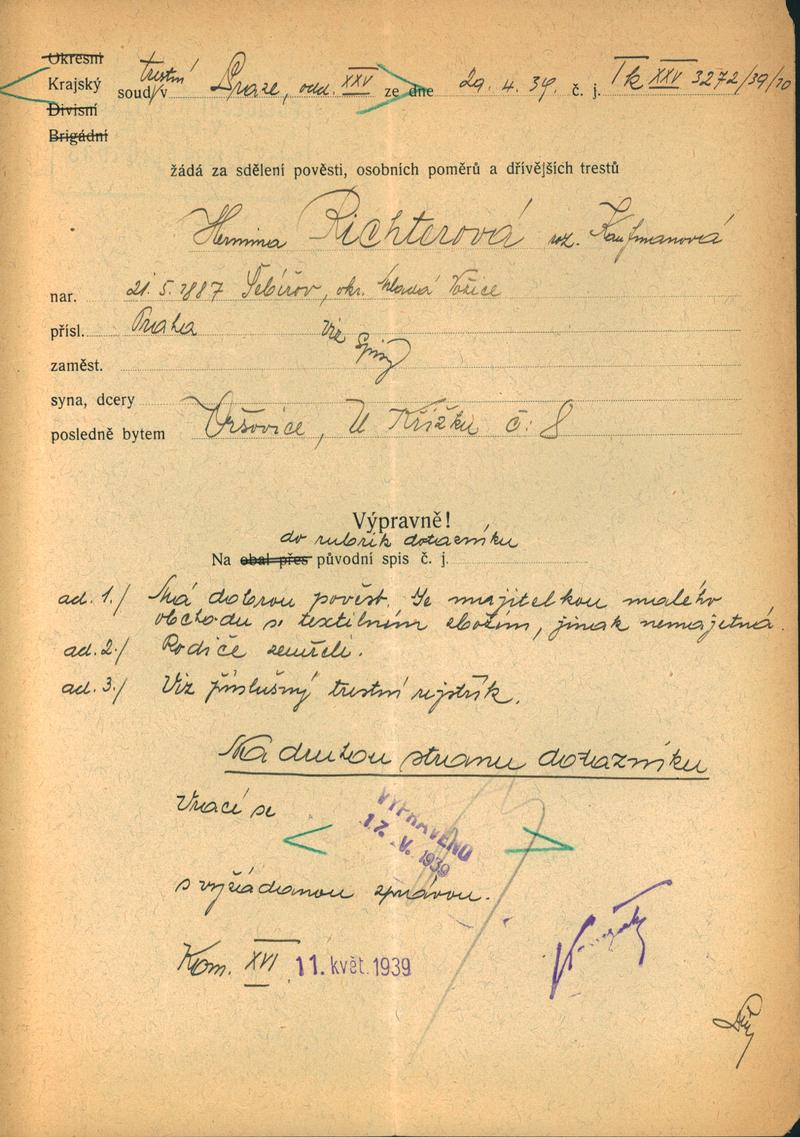 Okresní
Krajský trestní
soud v Praze, odd. XXV ze dne 29. 4. 39. č. j. Tk XXV 3272/39/10
Divisní
Brigádní
žádá za sdělení pověsti, osobních poměrů a dřívějších trestů
Hermina Richterová roz. Kaufmanová
nar. 21. 5. 1887 Šebířov, okr. Mladá Vožice
přísl. Praha Viz spisy
zaměst.
syna, dcery
posledně bytem Vršovice, U Křížku č: 8
Výpravně!
do rubrik dotazníku
Na obal přes původní spis č. j.
ad. 1./ Má dobrou pověst. Je majitelkou malého
obchodu s textilním zbožím, jinak nemajetná.
ad. 2./ Rodiče zemřeli.
ad. 3./ Viz příslušný trestní rejstřík.
Na druhou stranu dotazníku
Vrací se
VYPRAVENO
17. V. 1939
s vyžádanou zprávou.
Kom. XVI 11. květ. 1939